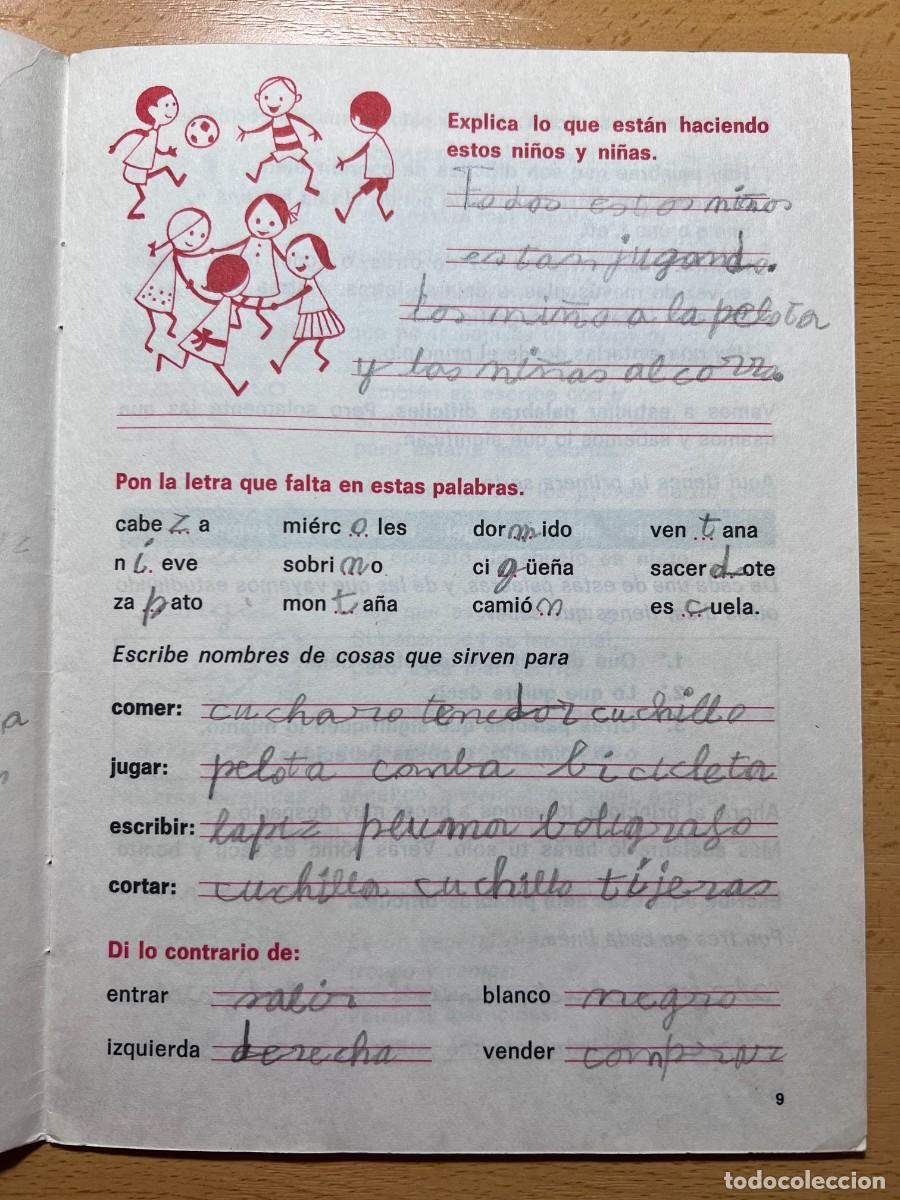 Explica lo que están haciendo
estos niños y niñas.
todos estos niños
estan jugando.
Los niño a la pelota
y las niñas al corro.
Pon la letra que falta en estas palabras.
cabe z a miérc o les dor m ido ven t ana
n i eve sobri n o ci g üeña sacer d ote
za p ato mon t aña camió n es c uela.
Escribe nombres de cosas que sirven para
comer: cuchara tenedor cuchillo
jugar: pelota comba bicicleta
escribir: lapiz pluma boligrafo
cortar: cuchilla cuchillo tijeras
Di lo contrario de:
entrar salir blanco negro
izquierda derecha vender comprar
9
todocoleccion